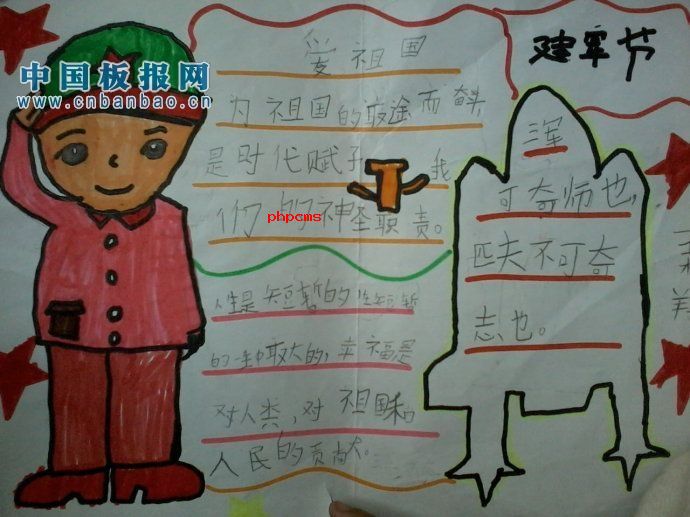 中国板报网
www.cnbanbao.cn
爱祖国
为祖国的前途而奋斗,
是时代赋予我
们的神圣职责。
phpcms
人生是短暂的 短暂
的一生中最大的幸福是
对人类,对祖国和
人民的贡献。
建军节
三军
可奇师也,
匹夫不可奇
志也。